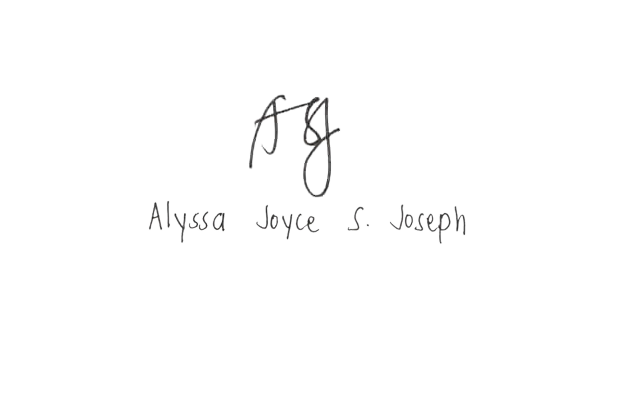 Alyssa Joyce S. Joseph